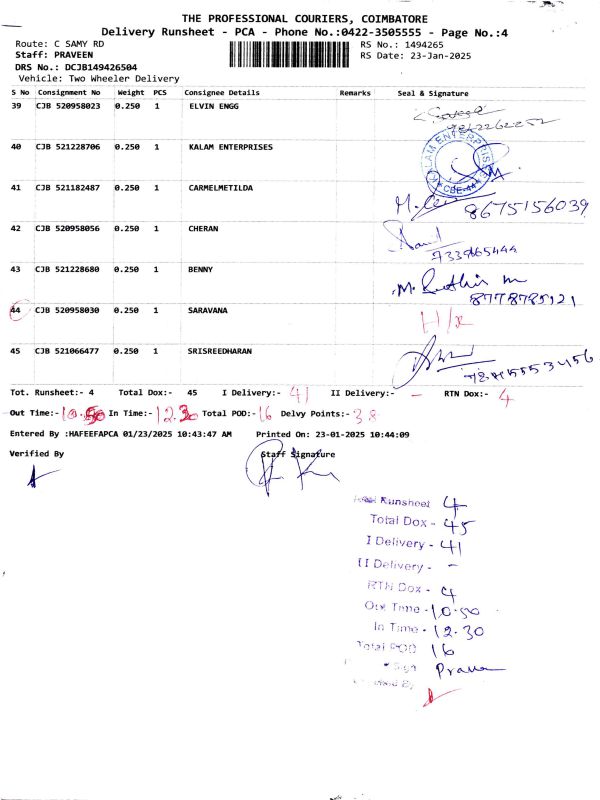 THE PROFESSIONAL COURIERS, COIMBATORE
Delivery Runsheet - PCA - Phone No.:0422-3505555 - Page No.:4
Route: C SAMY RD
RS No.: 1494265
Staff: PRAVEEN
RS Date: 23-Jan-2025
DRS No.: DCJB149426504
Vehicle: Two Wheeler Delivery
S No Consignment No Weight PCS Consignee Details Remarks Seal & Signature
39 CJB 520958023 0.250 1 ELVIN ENGG
40 CJB 521228706 0.250 1 KALAM ENTERPRISES
KALAM ENTERPRISES
CBE-44
41 CJB 521182487 0.250 1 CARMELMETILDA
8675156039
42 CJB 520958056 0.250 1 CHERAN
43 CJB 521228680 0.250 1 BENNY
8778785121
44 CJB 520958030 0.250 1 SARAVANA
45 CJB 521066477 0.250 1 SRISREEDHARAN
Tot. Runsheet:- 4 Total Dox:- 45 I Delivery:- 41 II Delivery:- - RTN Dox:- 4
Out Time:- 10.50 In Time:- 12.30 Total POD:- 16 Delvy Points:- 38
Entered By :HAFEEFAPCA 01/23/2025 10:43:47 AM Printed On: 23-01-2025 10:44:09
Verified By Staff Signature
Runsheet 4
Total Dox - 45
I Delivery - 41
II Delivery - -
RTN Dox - 4
Out Time - 10.50
In Time - 12.30
Total POD 16
Sign